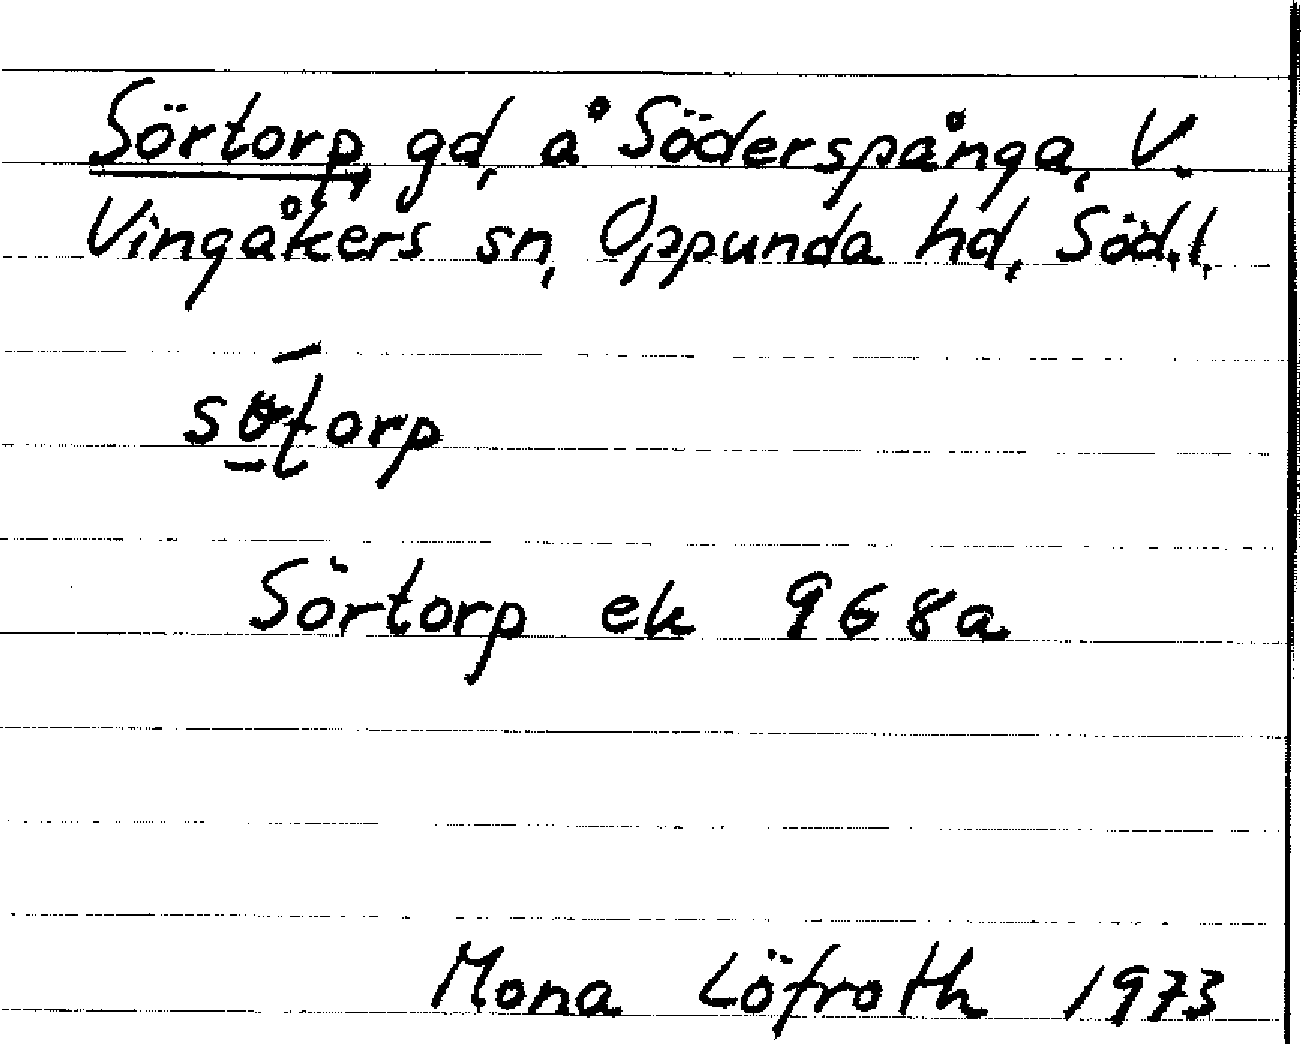 Sörtorp, gd, å Söderspånga, V.
Vingåkers sn, Oppunda hd, Söd.l.
Sörtorp ek 968a
Mona Löfroth 1973